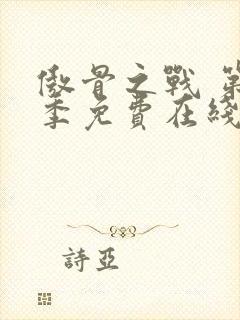 傲骨之戰 第
季免費在綫
詩亞